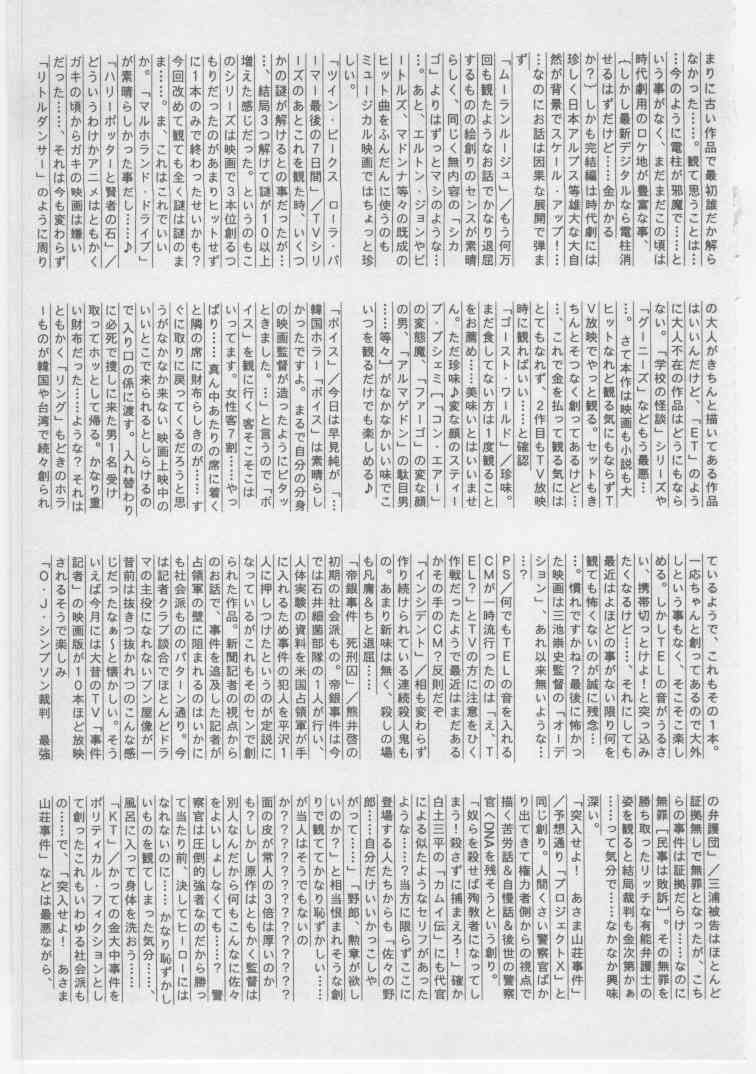 まりに古い作品で最初誰だか解ら
なかった……。観て思うことは…
…今のように電柱が邪魔で……と
いう事がなく、まだまだこの頃は
時代劇用のロケ地が豊富な事、
(しかし最新デジタルなら電柱消
せるはずだけど……金かかる
か?)しかも完結編は時代劇には
珍しく日本アルプス等雄大な大自
然が背景でスケール・アップ!…
…なのにお話は因果な展開で弾ま
ず
「ムーランルージュ」/もう何万
回も観たようなお話でかなり退屈
するものの絵創りのセンスが素晴
らしく、同じく無内容の「シカ
ゴ」よりはずっとマシのような…
…。あと、エルトン・ジョンやビ
ートルズ、マドンナ等々の既成の
ヒット曲をふんだんに使うのも
ミュージカル映画ではちょっと珍
しい。
「ツイン・ピークス ローラ・パ
ーマー最後の7日間」/TVシリ
ーズのあとこれを観た時、いくつ
かの謎が解けるとの事だったが…
…、結局3つ解けて謎が10以上
増えた感じだった。というのもこ
のシリーズは映画で3本位創るつ
もりだったのがあまりヒットせず
に1本のみで終わったせいかも?
今回改めて観ても全く謎は謎のま
ま……。ま、これはこれでいい
か。「マルホランド・ドライブ」
が素晴らしかった事だし……♪
「ハリーポッターと賢者の石」/
どういうわけかアニメはともかく
ガキの頃からガキの映画は嫌い
だった……、それは今も変わらず
「リトルダンサー」のように周り
の大人がきちんと描いてある作品
はいいんだけど、「ET」のよう
に大人不在の作品はどうにもなら
ない。「学校の怪談」シリーズや
「グーニーズ」などもう最悪…
…。さて本作は映画も小説も大
ヒットなれど観る気にもならずT
V放映でやっと観る。セットもき
ちんとそつなく創ってあるけど…
…、これで金を払って観る気には
とてもなれず、2作目もTV放映
時に観ればいい……と確認
「ゴースト・ワールド」/珍味。
まだ食してない方は1度観ること
をお薦め……美味いとはいいませ
ん。ただ珍味♪変な顔のスティー
ブ・ブシェミ[「コン・エアー」
の変態魔、「ファーゴ」の変な顔
の男、「アルマゲドン」の駄目男
……等々]がなかなかいい味でこ
いつを観るだけでも楽しめる♪
「ボイス」/今日は早見純が「…
韓国ホラー「ボイス」は素晴らし
かったですよ。まるで自分の分身
の映画監督が造ったようにピタッ
ときました。…」と言うので「ボ
イス」を観に行く客そこそこは
いってます。女性客7割……やっ
ぱり……真ん中あたりの席に着く
と隣の席に財布らしきのが……す
ぐに取りに戻ってくるだろうと思
うがなかなか来ない 映画上映中の
いいとこで来られるとしらけるの
で入り口の係に渡す。入れ替わり
に必死で捜しに来た男1名受け
取ってホッとして帰る。かなり重
い財布だった……ような? それは
ともかく「リング」もどきのホラ
ーものが韓国や台湾で続々創られ
ているようで、これもその1本。
一応ちゃんと創ってあるので大外
しという事もなく、そこそこ楽し
める。しかしTELの音がうるさ
い、携帯切っとけよ!と突っ込み
たくなるけど……、それにしても
最近はよほどの事がない限り何を
観ても怖くないのが誠に残念…
…。慣れですかね?最後に怖かっ
た映画は三池崇史監督の「オーデ
ション」、あれ以来無いような…
…?
PS/何でもTELの音を入れる
CMが一時流行ったのは「え、T
EL?」とTVの方に注意をひく
作戦だったようで最近はまだある
かその手のCM?反則だぞ
「インシデント」/相も変わらず
作り続けられている連続殺人鬼も
の。あまり新味は無く、殺しの場
も凡庸&ちと退屈……
「帝銀事件 死刑囚」/熊井啓の
初期の社会派もの。帝銀事件は今
では石井細菌部隊の1人が行い、
人体実験の資料を米国占領軍が手
に入れるため事件の犯人を平沢1
人に押しつけたというのが定説に
なっているがこれもそのセンで創
られた作品。新聞記者の視点から
のお話で、事件を追及した記者が
占領軍の壁に阻まれるのはいかに
も社会派もののパターン通り。今
は記者クラブ談合でほとんどドラ
マの主役になれないブン屋像が一
昔前は抜きつ抜かれつのこんな感
じだったなぁ〜と懐かしい。そう
いえば今月には大昔のTV「事件
記者」の映画版が10本ほど放映
されるそうで楽しみ
「O・J・シンプソン裁判 最強
の弁護団」/三浦被告はほとんど
証拠無しで無罪となったが、こち
らの事件は証拠だらけ……なのに
無罪[民事は敗訴]。その無罪を
勝ち取ったリッチな有能弁護士の
姿を観ると結局裁判も金次第かぁ
……って気分で……なかなか興味
深い。
「突入せよ! あさま山荘事件」
/予想通り「プロジェクトX」と
同じ創り。人間くさい警察官ばか
り出てきて権力者側からの視点で
描く苦労話&自慢話&後世の警察
官へDNAを残そうという創り。
「奴らを殺せば殉教者になってし
まう!殺さずに捕まえろ!」確か
白土三平の「カムイ伝」にも代官
による似たようなセリフがあった
ような……?当方に限らずここに
登場する人たちからも「佐々の野
郎……自分だけいいかっこしや
がって……」「野郎、勲章が欲し
いのか?」と相当恨まれそうな創
りで観ててかなり恥ずかしい……
が当人はそうでもないの
か?????????????????
面の皮が常人の3倍は厚いのか
も?しかし原作はともかく監督は
別人なんだから何もこんなに佐々
をよいしょしなくても……? 警
察官は圧倒的強者なのだから勝っ
て当たり前、決してヒーローには
なれないのに…… かなり恥ずかし
いものを観てしまった気分……、
風呂に入って身体を洗おう……
「KT」/かっての金大中事件を
ポリティカル・フィクションとし
て創ったこれもいわゆる社会派も
の……で、「突入せよ! あさま
山荘事件」などは最悪ながら、